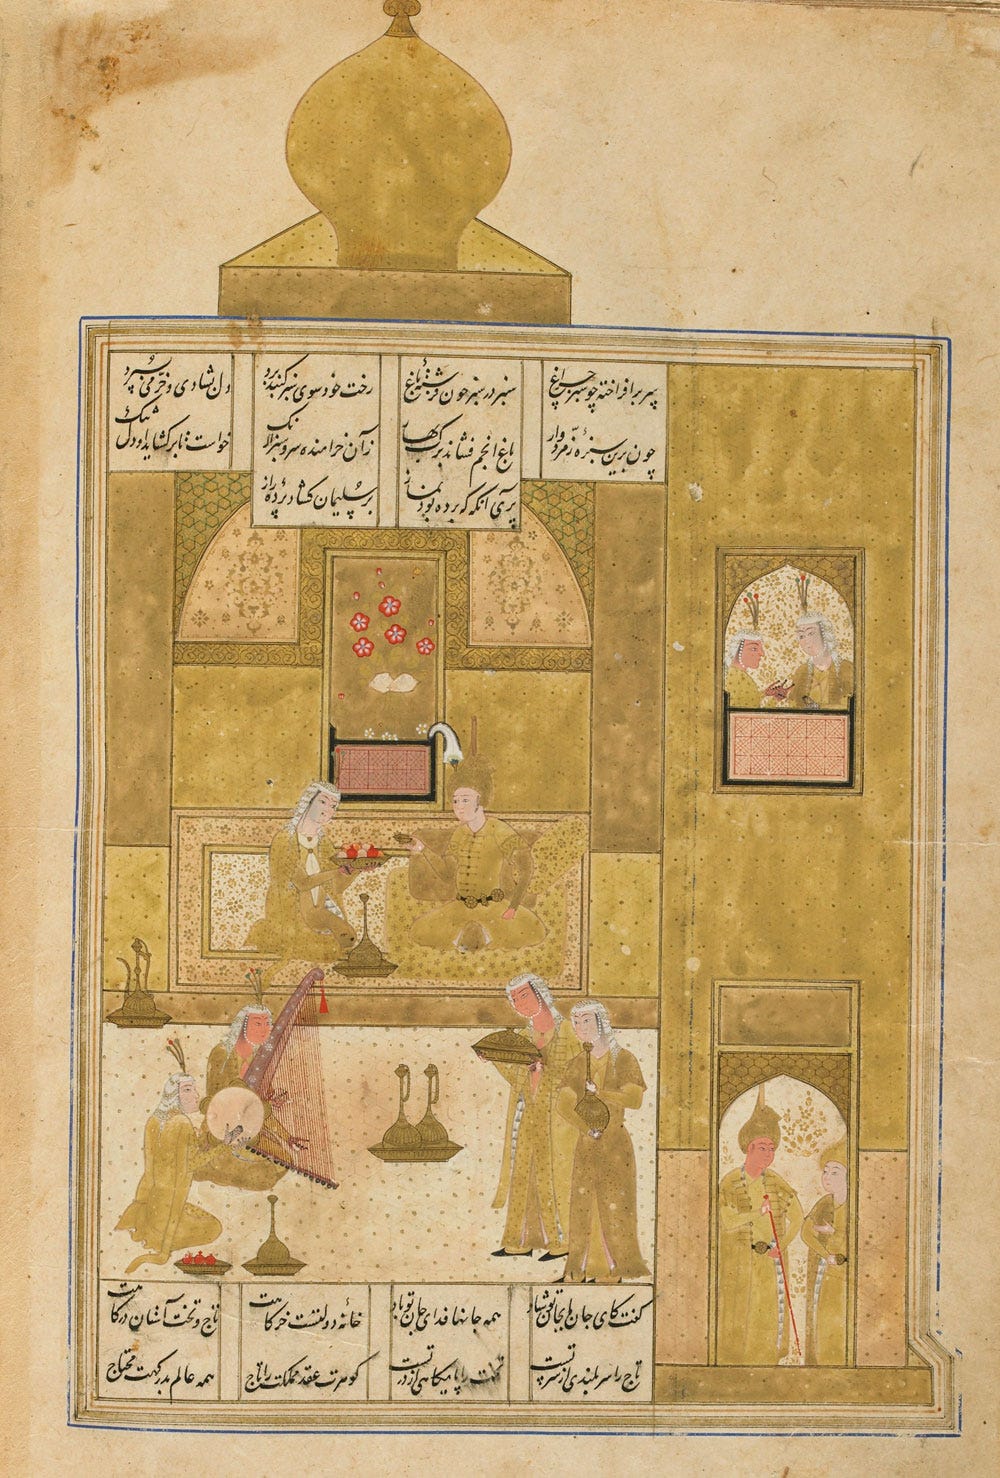 سر برافراخته چو سبز چراغ سبز در سبز چون فرشتهٔ باغ رخت خود سوی سبز گنبد برد دل بشادی و خرمی بسپرد
چون برین سبزهٔ زمردوار باغ انجم فشاند برگ بهار زآن خرامنده سرو سبزآرنگ خواست تا برگشاید او دل تنگ
پری آنگه که برده بود نماز بر سلیمان گشاد پردهٔ راز
گفت کای جان ما بجان تو شاد همه جانها فدای جان تو باد خانهٔ دولتست خرگاهت تاج و تخت آستان درگاهت
تاج را سربلندی از سر تست تخت را پایگاهی از در تست گوهرت عقد مملکت را تاج همه عالم بدرگهت محتاج